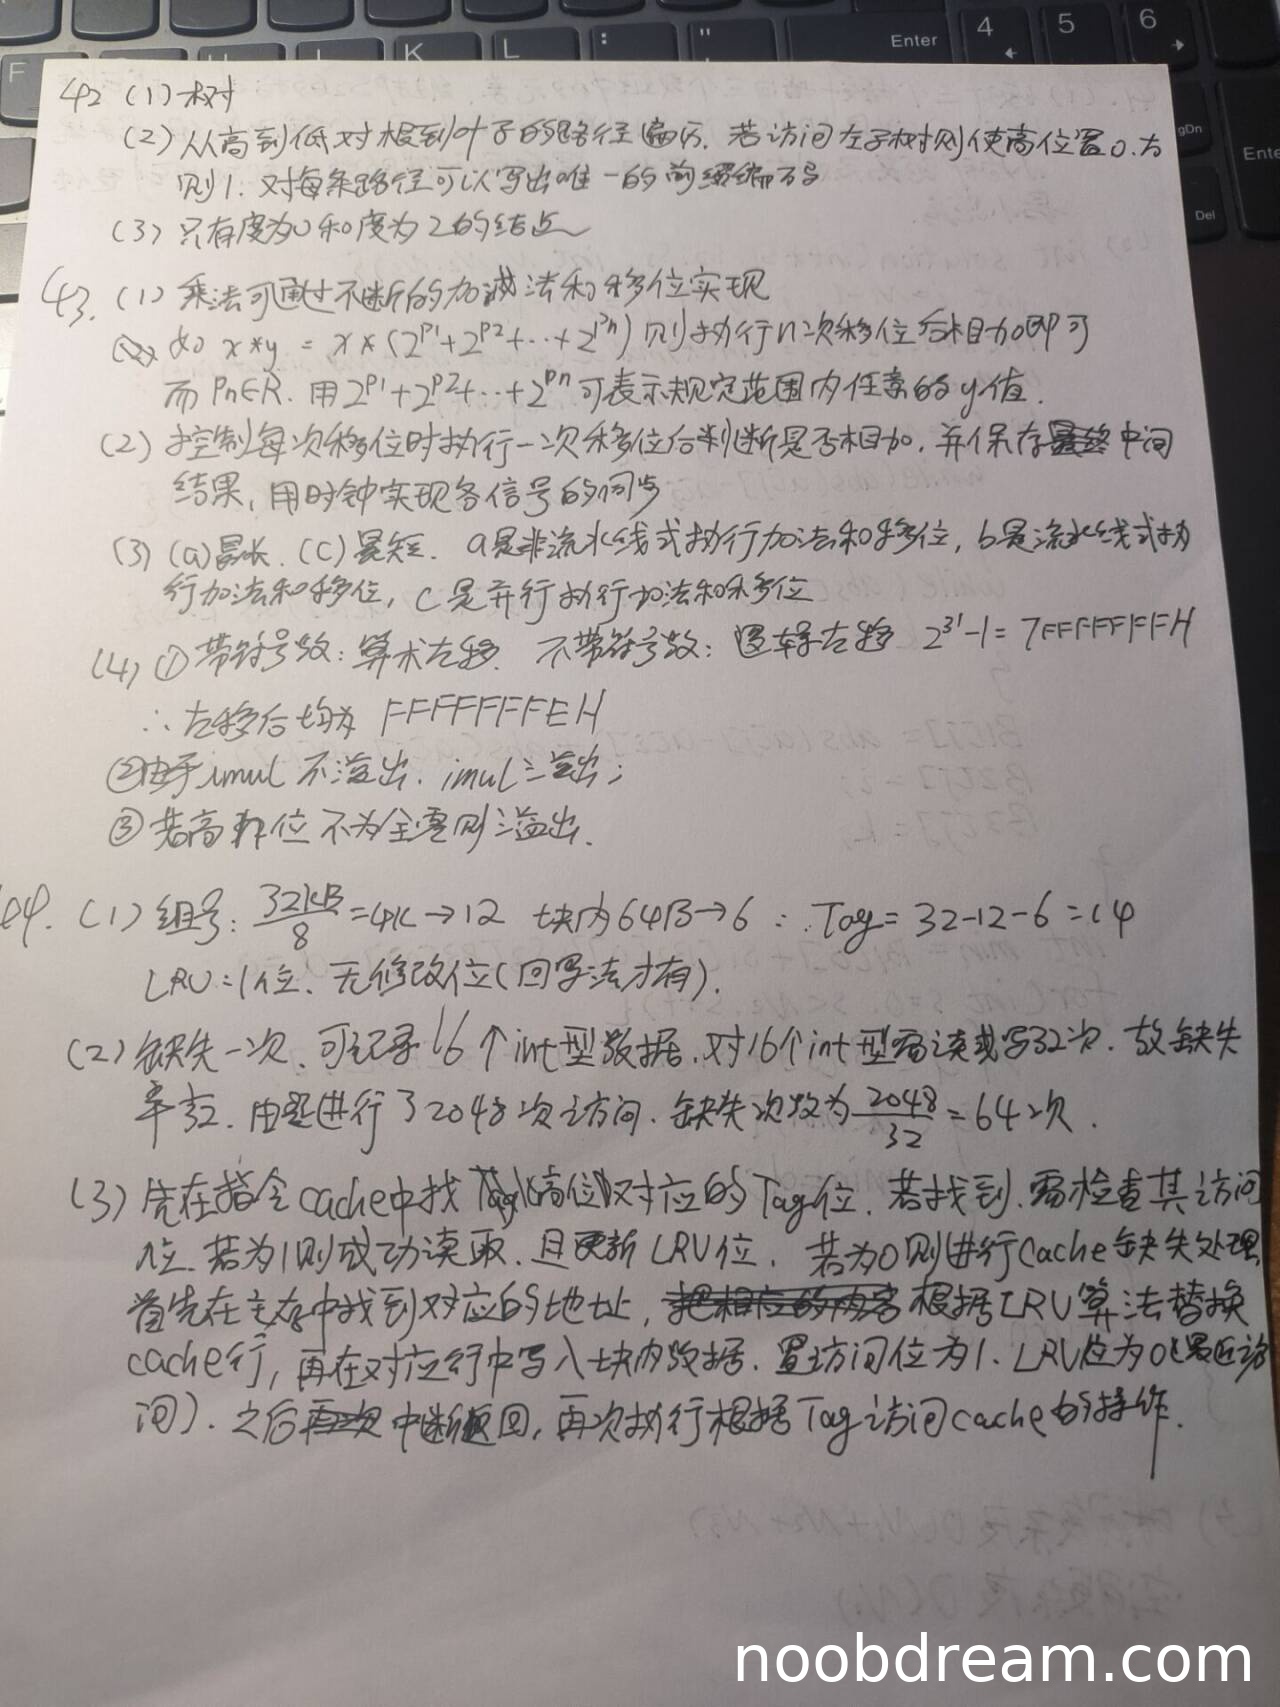 42 (1) 树
(2) 从高到低对根到叶子的路径遍历. 若访问左子树则使高位置0. 右
则1. 对每条路径可以写出唯一的前缀编码
(3) 只有度为0和度为2的结点
43. (1) 乘法可通过不断的加减法和移位实现
如 x*y = x*(2^p1+2^p2+…+2^pn) 则执行n次移位后相加即可
而 Pn∈R. 用2^p1+2^p2+…+2^pn可表示规定范围内任意的y值.
(2) 控制每次移位时执行一次移位后判断是否相加, 并保存中间
结果, 用时钟实现各信号的同步
(3) (a)最长. (C)最短. a是非流水线式执行加法和移位, b是流水线式执
行加法和移位, C是并行执行加法和移位
(4) ①带符号数: 算术左移. 不带符号数: 逻辑左移 2^31-1=7FFFFFFFH
∴ 左移后均为 FFFFFFFEH
②由于imul 不溢出. imul 溢出;
③若高 位不为全零则溢出.
44. (1) 组号: 32KB/8=4K→12 块内64B→6 ∴ Tag=32-12-6=14
LRU:1位. 无修改位(回写法才有).
(2) 缺失一次, 可记录16个int型数据. 对16个int型需读或写32次. 故缺失
率32. 由题进行了2048次访问. 缺失次数为 2048/32=64次.
(3) 先在指令cache中找Tag(高位)对应的Tag位. 若找到. 需检查其访问
位. 若为1则成功读取. 且更新LRU位. 若为0则进行Cache缺失处理
首先在主存中找到对应的地址, 根据LRU算法替换
cache行, 再在对应行中写入块内数据. 置访问位为1. LRU位为0(最近访
问). 之后中断返回, 再次执行根据Tag访问cache的操作.
noobdream.com